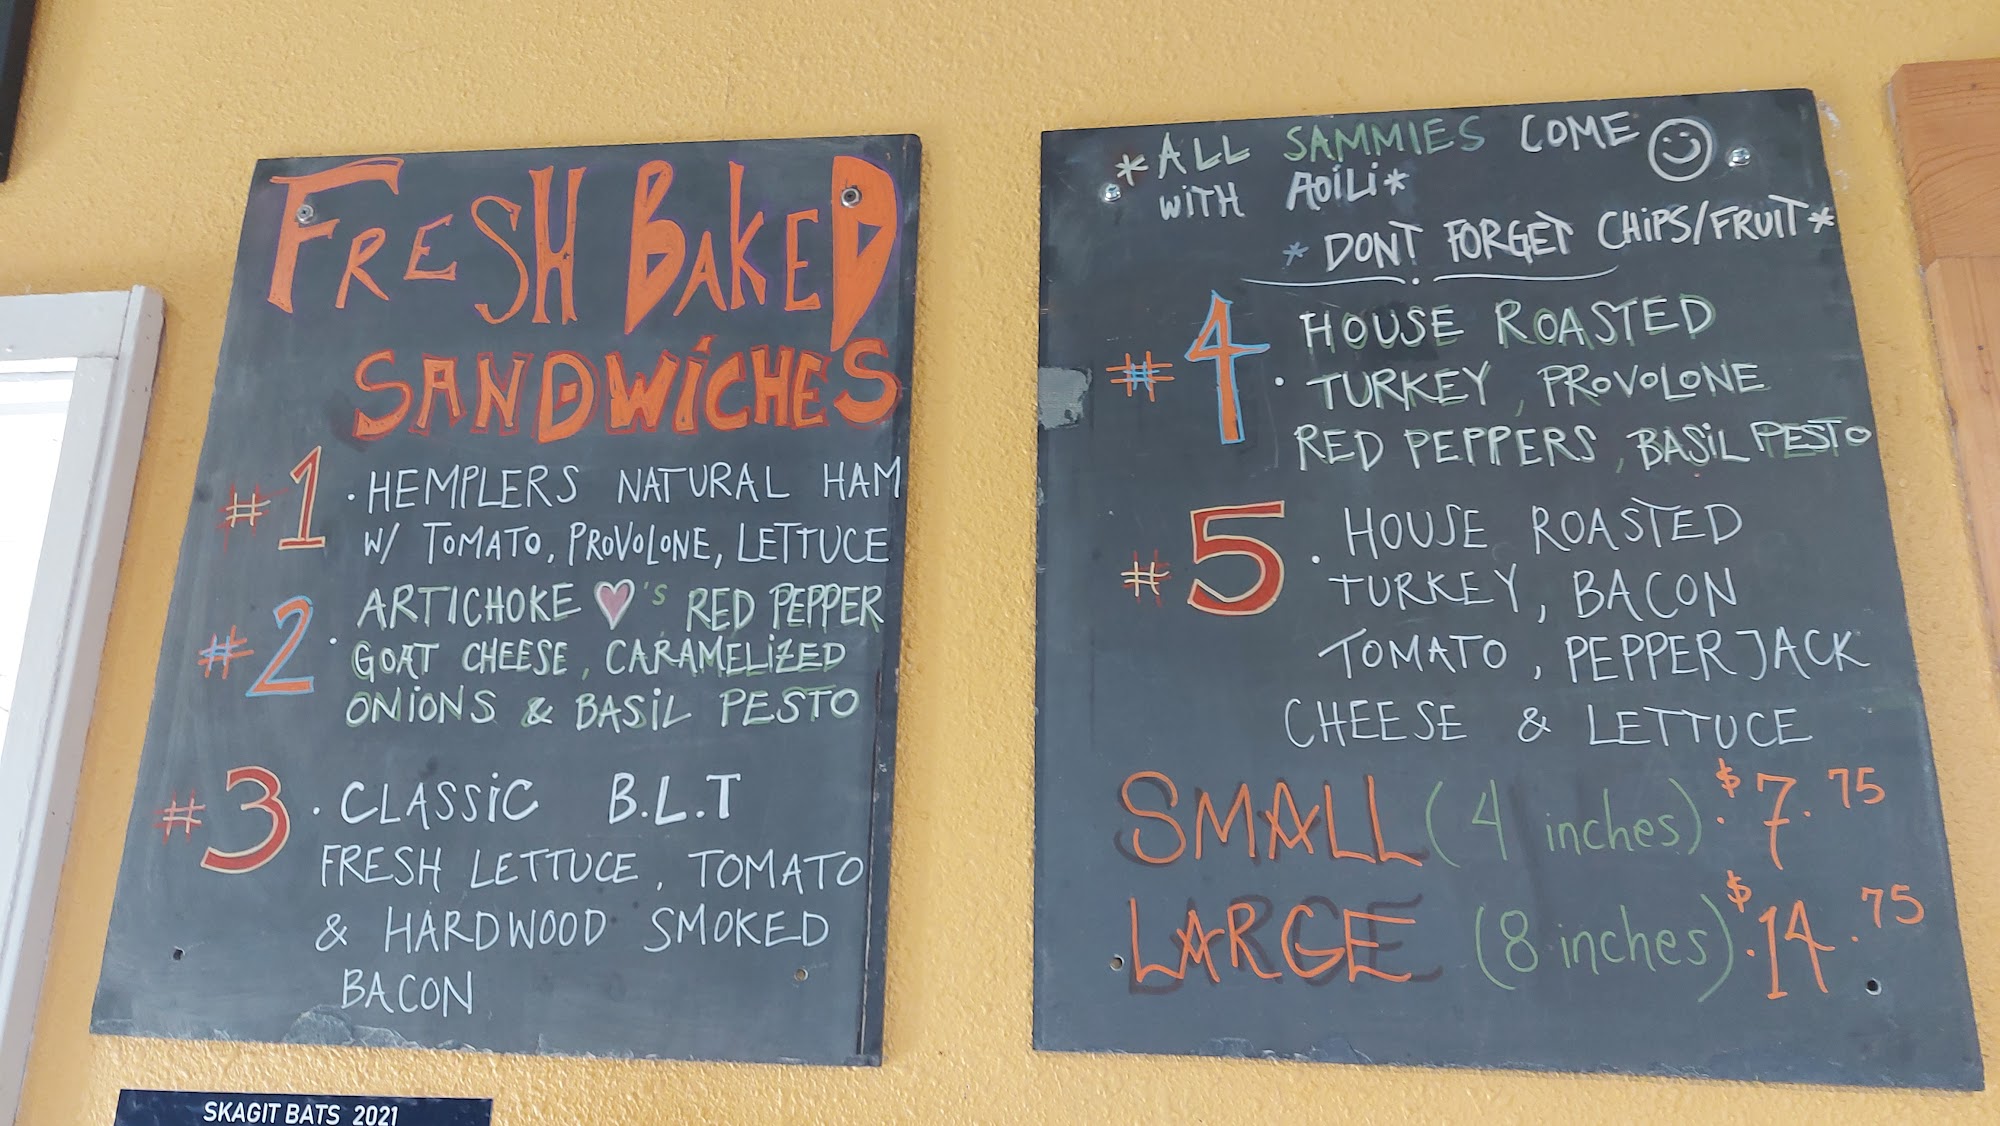 FRESH BAKED
SANDWICHES
#1 · HEMPLERS NATURAL HAM
W/ TOMATO, PROVOLONE, LETTUCE
#2 · ARTICHOKE ♥'s RED PEPPER
GOAT CHEESE, CARAMELIZED
ONIONS & BASIL PESTO
#3 · CLASSIC B.L.T
FRESH LETTUCE, TOMATO
& HARDWOOD SMOKED
BACON
SKAGIT BATS 2021
*ALL SAMMIES COME
WITH AOILI*
* DONT FORGET CHIPS/FRUIT*
#4 · HOUSE ROASTED
TURKEY, PROVOLONE
RED PEPPERS, BASIL PESTO
#5 · HOUSE ROASTED
TURKEY, BACON
TOMATO, PEPPER JACK
CHEESE & LETTUCE
SMALL (4 inches) · $7.75
LARGE (8 inches) · $14.75